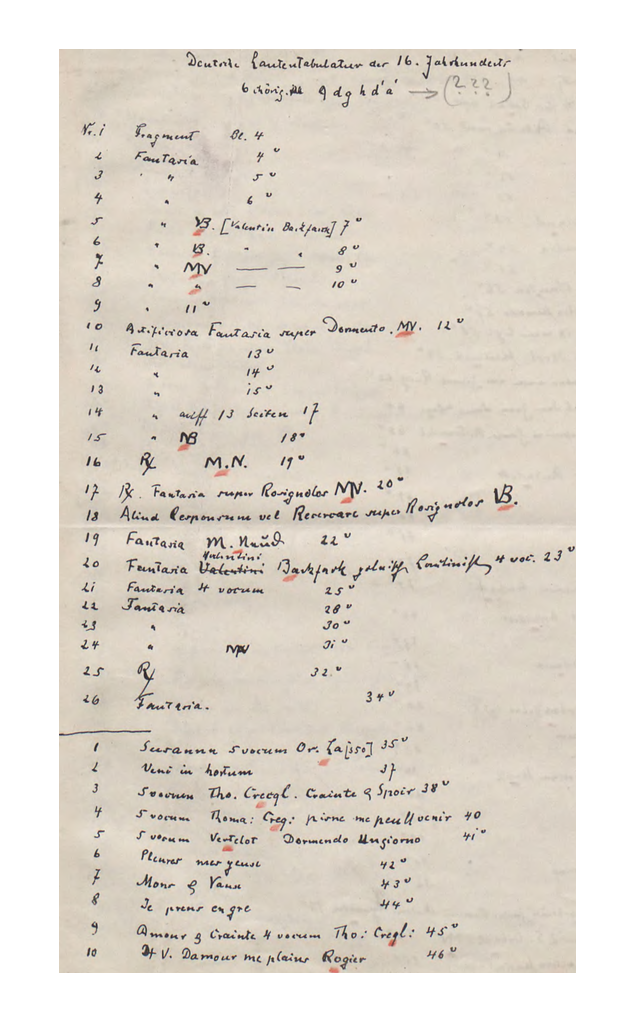 Deutsche Lautentabulatur des 16. Jahrhunderts
6 chörig. A d g h d' a' → (???)
Nr. 1 Fragment Bl. 4
2 Fantasia 4 v
3 " " 5 v
4 " 6 v
5 " VB. [Valentin Backfark] 7 v
6 " B. " " 8 v
7 " MV — — 9 v
8 " " — — 10 v
9 " 11 v
10 Artificiosa Fantasia super Dormento. MV. 12 v
11 Fantasia 13 v
12 " 14 v
13 " 15 v
14 " auff 13 Seiten 17
15 " VB 18 v
16 Rx M.N. 19 v
17 Rx. Fantasia super Rosignolos MV. 20 v
18 Aliud Responsum vel Recercare super Rosignolos VB.
19 Fantasia M. 22 v
20 Fantasia Valentini Backfark 4 voc. 23 v
21 Fantasia 4 vocum 25 v
22 Fantasia 28 v
23 " 30 v
24 " MV 31 v
25 Rx 32 v
26 Fantasia. 34 v
1 Susanna 5 vocum Or. La[sso] 35 v
2 Veni in hortum 37
3 5 vocum Tho. Crecql. Crainte & Spoir 38 v
4 5 vocum Thoma: Creq: pisne me peult venir 40
5 5 vocum Vertelot Dormendo Ungiorno 41 v
6 Pleures mes yeuse 42 v
7 Mons & Vaux 43 v
8 Je prens en gre 44 v
9 Amour & Crainte 4 vocum Tho: Creql: 45 v
10 4 V. Damour me plains Rogier 46 v